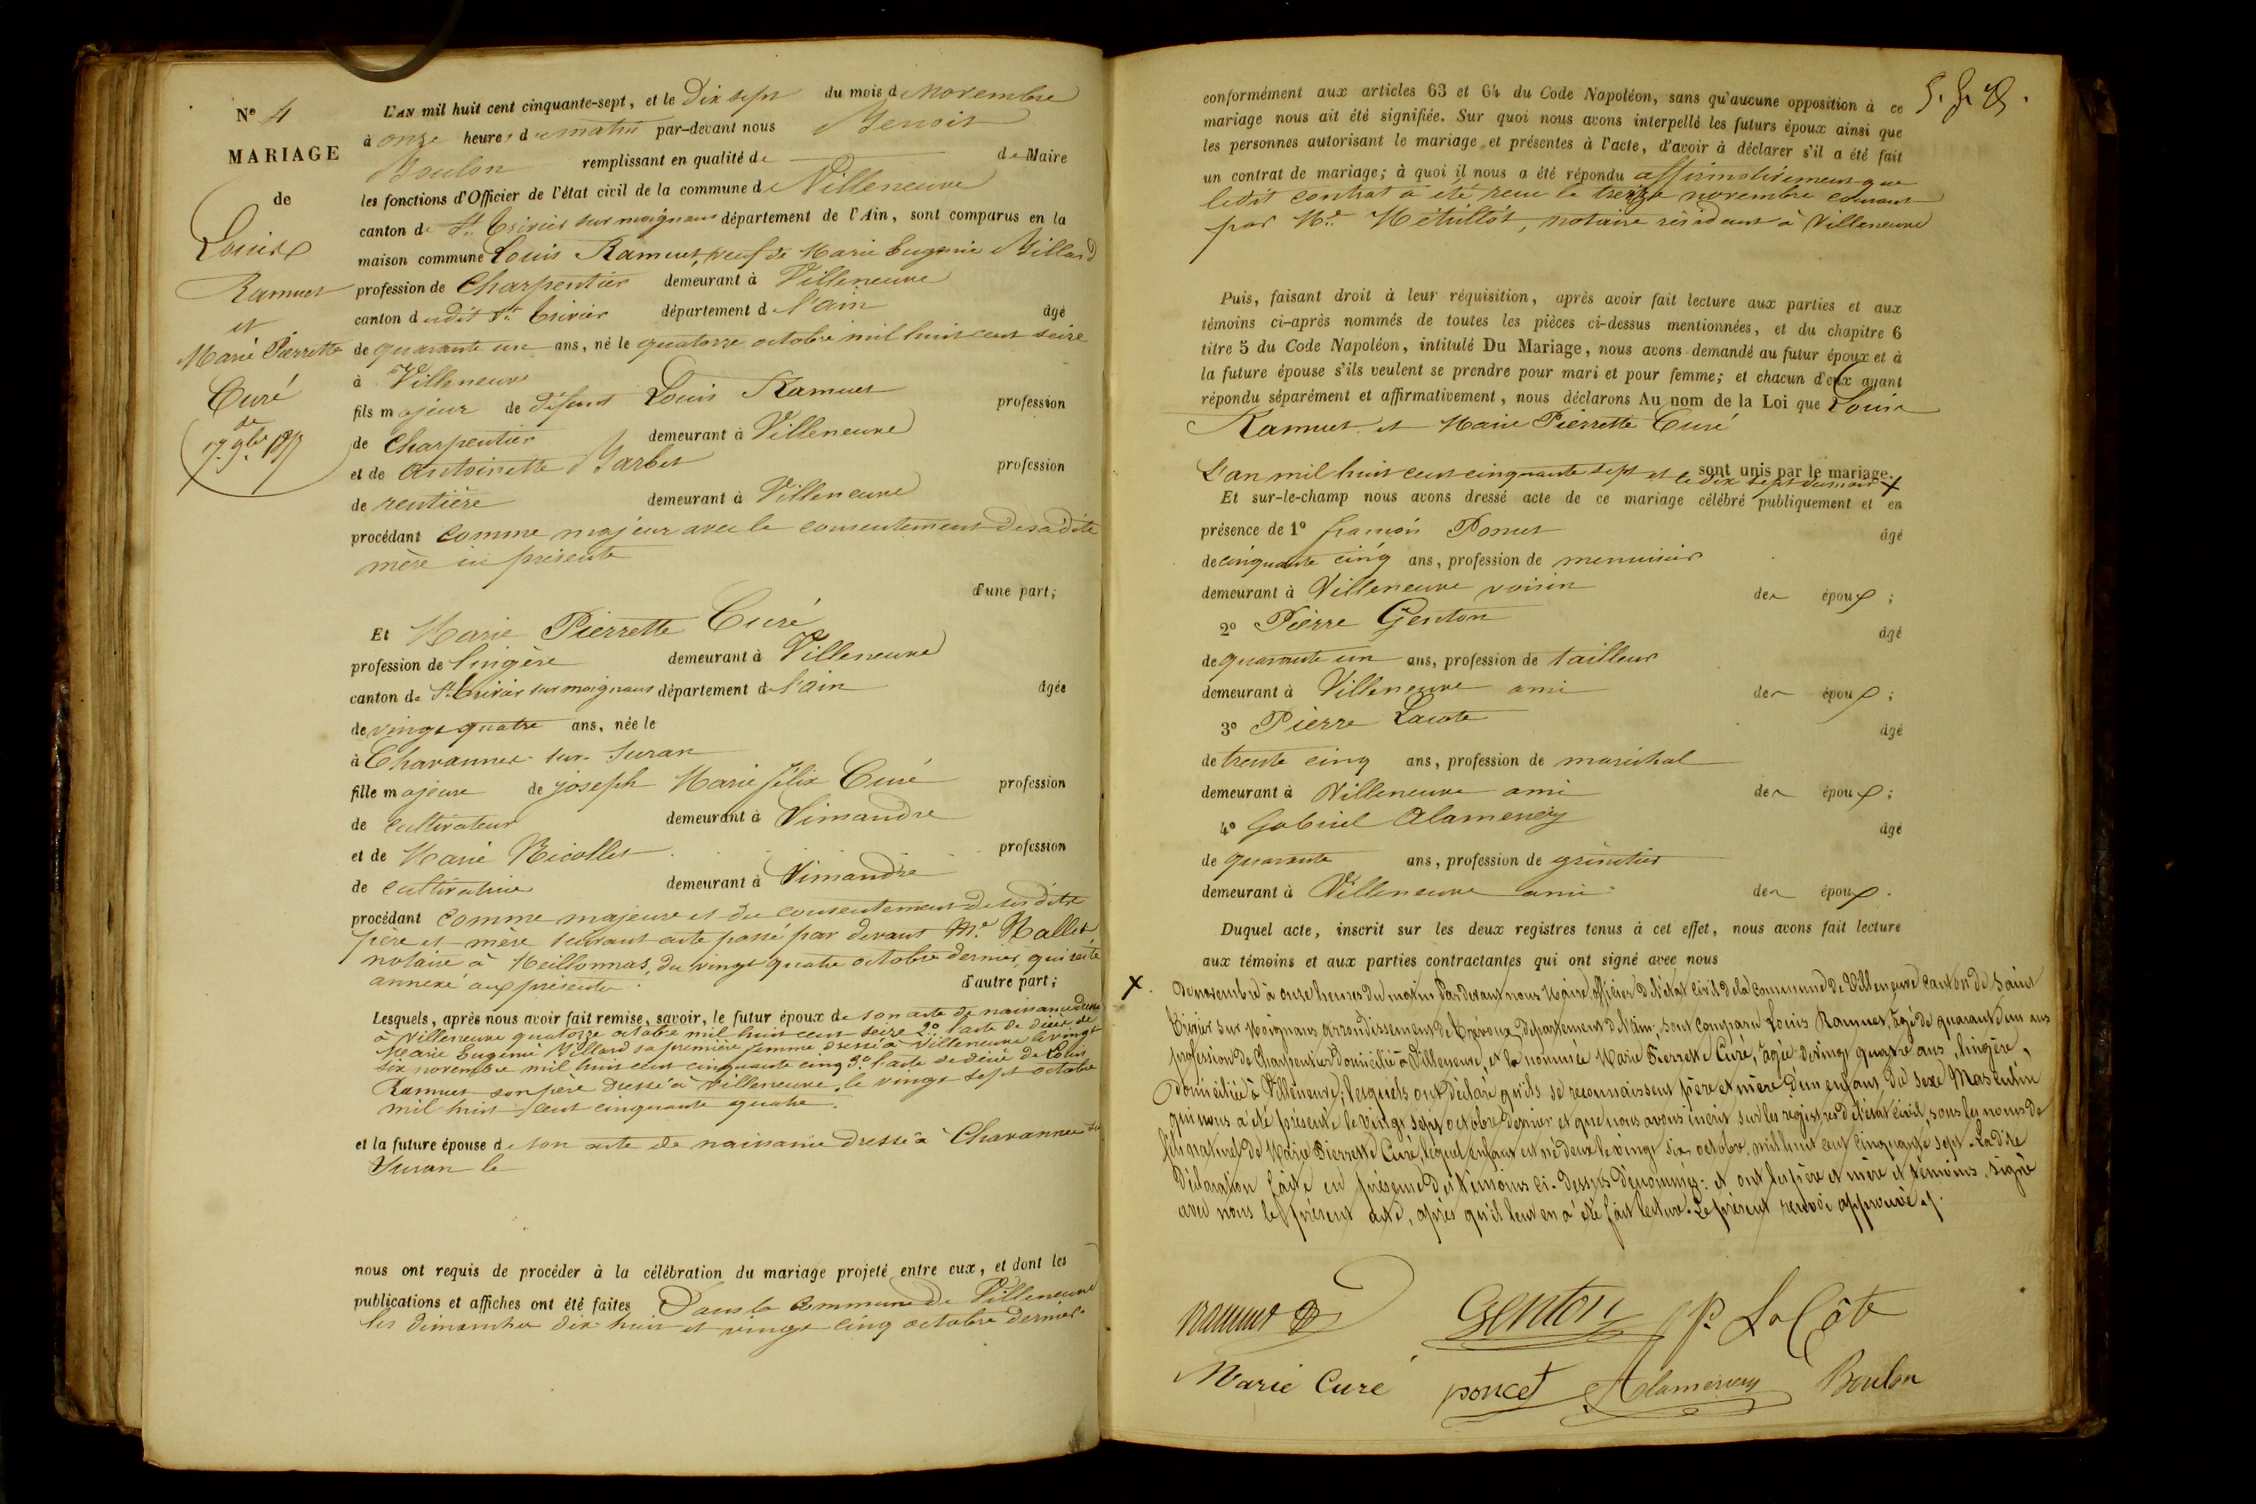 N° 4
MARIAGE
de
Louis
Ramuet
et
Marie Pierrette
Curé
du
17. 9bre 1857
L'AN mil huit cent cinquante-sept, et le Dix sept du mois de Novembre
à onze heures du matin par-devant nous Benoit
Boulon remplissant en qualité de de Maire
les fonctions d'Officier de l'état civil de la commune de Villeneuve
canton de St. Trivier sur moignans département de l'Ain, sont comparus en la
maison commune Louis Ramuet, veuf de Marie Eugénie Villard
profession de Charpentier demeurant à Villeneuve
canton dudit St. Trivier département de l'ain âgé
de quarante un ans, né le quatorze octobre mil huit cent seize
à Villeneuve
fils majeur de défunt Louis Ramuet profession
de Charpentier demeurant à Villeneuve
et de Antoinette Barbet profession
de rentière demeurant à Villeneuve
procédant comme majeur avec le consentement de sadite
mère ici présente
d'une part;
Et Marie Pierrette Curé
profession de lingère demeurant à Villeneuve
canton de St. Trivier sur moignans département de l'ain âgée
de vingt quatre ans, née le
à Chavannes sur Suran
fille majeure de joseph Marie félix Curé profession
de cultivateur demeurant à Simandre
et de Marie Nicollet profession
de cultivatrice demeurant à Simandre
procédant comme majeure et du consentement de ses dits
père et mère suivant acte passé par devant Me.
notaire à Meillonnas, du vingt quatre octobre dernier, qui reste
annexé aux présentes. d'autre part;
Lesquels, après nous avoir fait remise, savoir, le futur époux de son acte de naissance
à Villeneuve quatorze octobre mil huit cent seize 2° l'acte de décès de
Marie Eugénie Villard sa première femme dressé à Villeneuve le vingt
six novembre mil huit cent cinquante cinq 3° l'acte de décès de Louis
Ramuet son père dressé à Villeneuve, le vingt sept octobre
mil huit cent cinquante quatre.
et la future épouse de son acte de naissance dressé à Chavannes sur
Suran le
nous ont requis de procéder à la célébration du mariage projeté entre eux, et dont les
publications et affiches ont été faites Dans la commune de Villeneuve
les dimanches dix huit et vingt cinq octobre dernier.
conformément aux articles 63 et 64 du Code Napoléon, sans qu'aucune opposition à ce
mariage nous ait été signifiée. Sur quoi nous avons interpellé les futurs époux ainsi que
les personnes autorisant le mariage et présentes à l'acte, d'avoir à déclarer s'il a été fait
un contrat de mariage; à quoi il nous a été répondu affirmativement que
ledit contrat a été reçu le treize novembre courant
par Me. notaire résidant à Villeneuve
Puis, faisant droit à leur réquisition, après avoir fait lecture aux parties et aux
témoins ci-après nommés de toutes les pièces ci-dessus mentionnées, et du chapitre 6
titre 5 du Code Napoléon, intitulé Du Mariage, nous avons demandé au futur époux et à
la future épouse s'ils veulent se prendre pour mari et pour femme; et chacun d'eux ayant
répondu séparément et affirmativement, nous déclarons Au nom de la Loi que Louis
Ramuet et Marie Pierrette Curé
sont unis par le mariage.
L'an mil huit cent cinquante sept et le dix sept du mois X
Et sur-le-champ nous avons dressé acte de ce mariage célébré publiquement et en
présence de 1° françois Poncet âgé
de cinquante cinq ans, profession de menuisier
demeurant à Villeneuve voisin des époux;
2° Pierre Genton âgé
de quarante un ans, profession de tailleur
demeurant à Villeneuve ami des époux;
3° Pierre Lacote âgé
de trente cinq ans, profession de maréchal
demeurant à Villeneuve ami des époux;
4° Gabriel Alamercery âgé
de quarante ans, profession de
demeurant à Villeneuve ami des époux.
Duquel acte, inscrit sur les deux registres tenus à cet effet, nous avons fait lecture
aux témoins et aux parties contractantes qui ont signé avec nous
X. de novembre à onze heures du matin Pardevant nous Maire officier de l'état civil de la commune de Villeneuve canton de Saint
Trivier sur Moignans arrondissement de Trévoux, département de l'ain, sont comparu Louis Ramuet, âgé de quarante un ans
profession de Charpentier domicilié à Villeneuve, et la nommée Marie Pierrette Curé, âgée de vingt quatre ans, lingère,
Domiciliée à Villeneuve; lesquels ont déclaré qu'ils se reconnaissent père et mère d'un enfant du sexe Masculin
qui nous a été présenté le vingt sept octobre dernier et que nous avons inscrit sur les registres de l'état civil, sous les noms de
fils naturel de Marie Pierrette Curé, lequel enfant est né d'eux le vingt six octobre mil huit cent cinquante sept. La dite
Déclaration faite en présence des témoins ci-dessus dénommés: et ont les père et mère et témoins, signé
avec nous le présent acte, après qu'il leur en a été fait lecture. Le présent renvoi approuvé
Ramuet Genton P. La Côte
Marie Curé poncet Alamercery Boulon